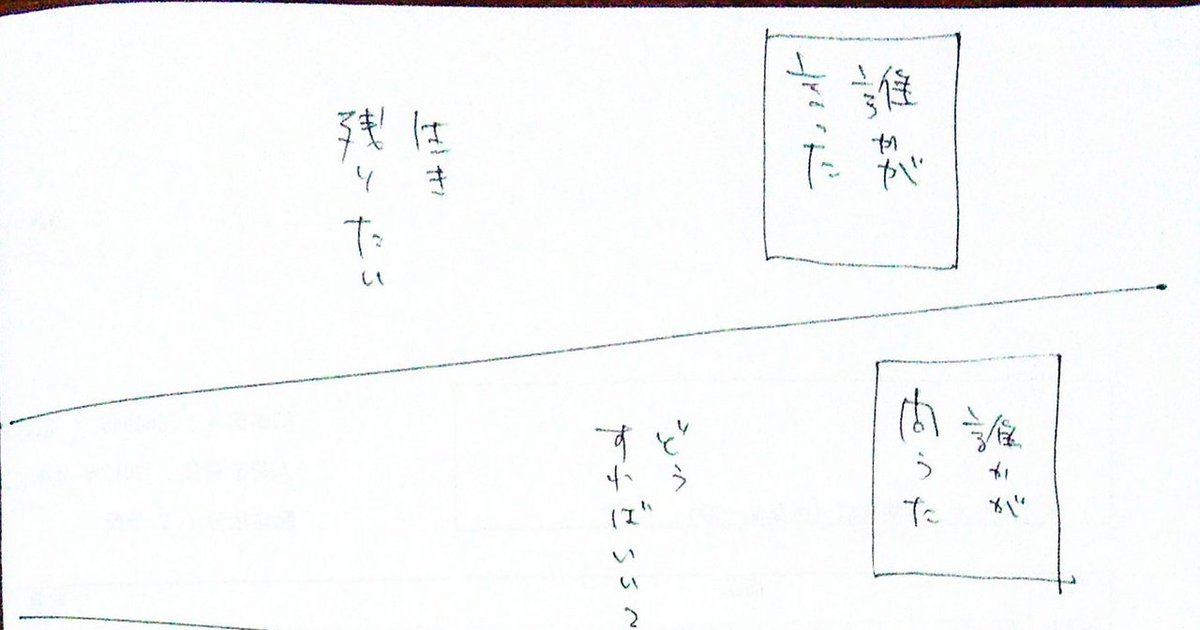 誰かが
言った
はき
残りたい
誰かが
向うた
どう
すればいい